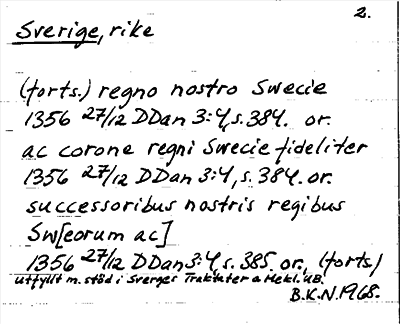 2.
Sverige, rike
(forts.) regno nostro Swecie
1356 27/12 DDan 3:4, s. 384. or.
ac corone regni Swecie fideliter
1356 27/12 DDan 3:4, s. 384. or.
successoribus nostris regibus
Sw[eorum ac]
1356 27/12 DDan 3:4, s. 385. or., (forts.)
utfyllt m. stöd i Sverges Traktater o Mekl. UB.
B.K.N. 1968.